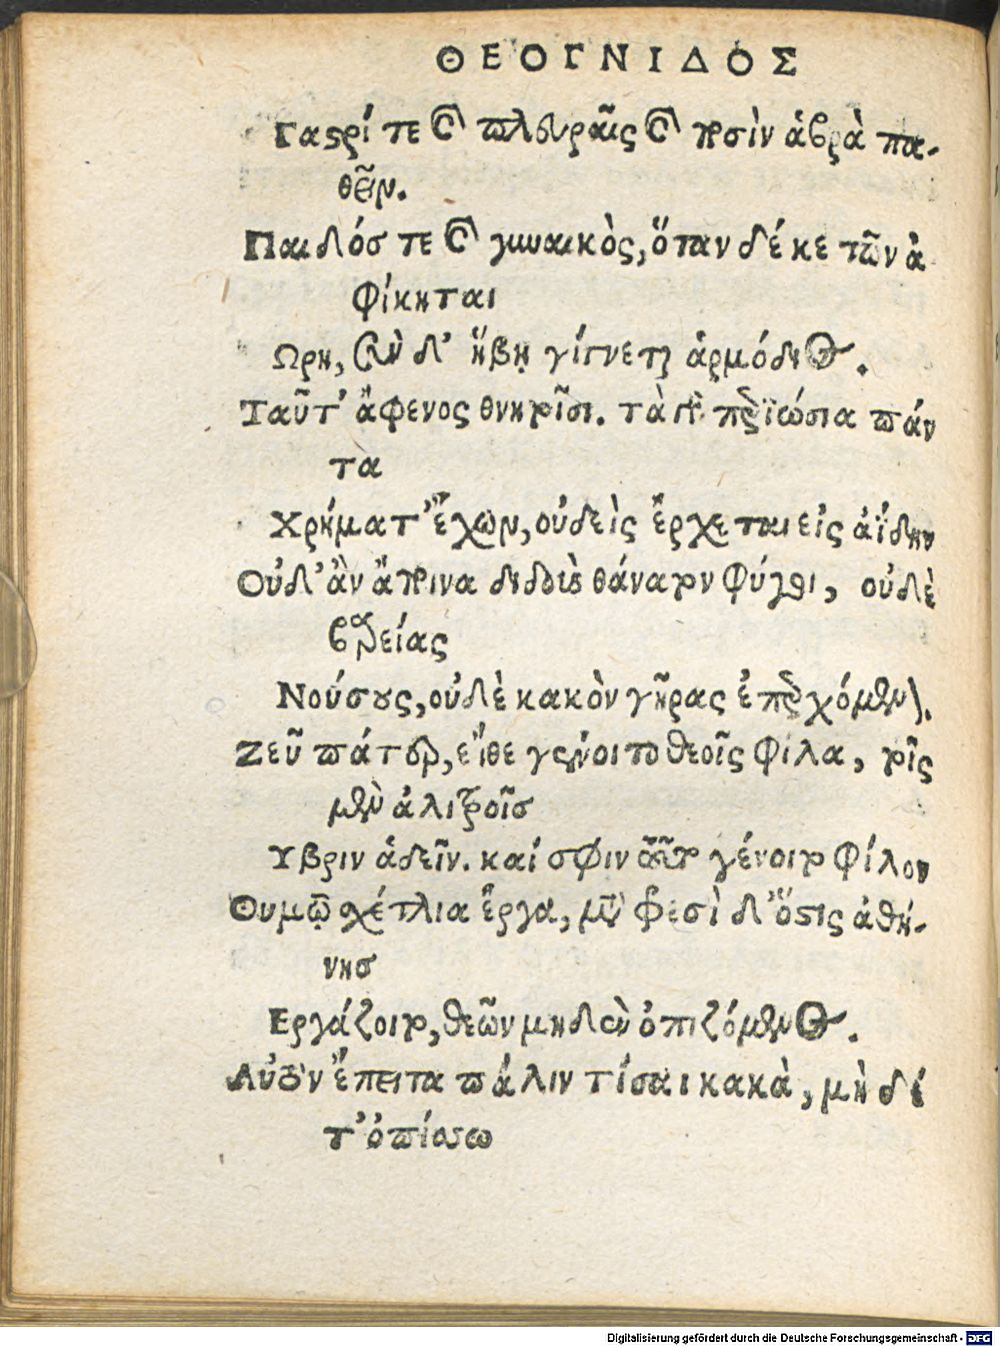 ΘΕΟΓΝΙΔΟΣ
Γαστρί τε καὶ πλευραῖς καὶ ποσὶν ἁβρὰ πα-
θεῖν.
Παιδός τε καὶ γυναικὸς, ὅταν δέ κε τῶν ἀ
φίκηται
Ωρη, σὺν δ' ἥβη γίγνεται ἁρμόδιος.
Ταῦτ' ἄφενος θνητοῖσι. τὰ γὰρ περϊώσια πάν
τα
Χρήματ' ἔχων, οὐδεὶς ἔρχεται εἰς ἀΐδην
Οὐδ' ἂν ἄποινα διδοὺς θάνατον φύγοι, οὐδὲ
βαρείας
Νούσους, οὐδὲ κακὸν γῆρας ἐπερχόμενον.
Ζεῦ πάτερ, εἴθε γένοιτο θεοῖς φίλα, τοῖς
μὲν ἀλιτροῖσ
Υβριν ἁδεῖν. καί σφιν τοῦτο γένοιτο φίλον
Θυμῷ σχέτλια ἔργα, μετὰ φρεσὶ δ' ὅστις ἀθή-
νησ
Εργάζοιτο, θεῶν μηδὲν ὀπιζόμενος.
Αὐτὸν ἔπειτα πάλιν τίσαι κακὰ, μὴ δέ
τ' ὀπίσσω
Digitalisierung gefördert durch die Deutsche Forschungsgemeinschaft - DFG